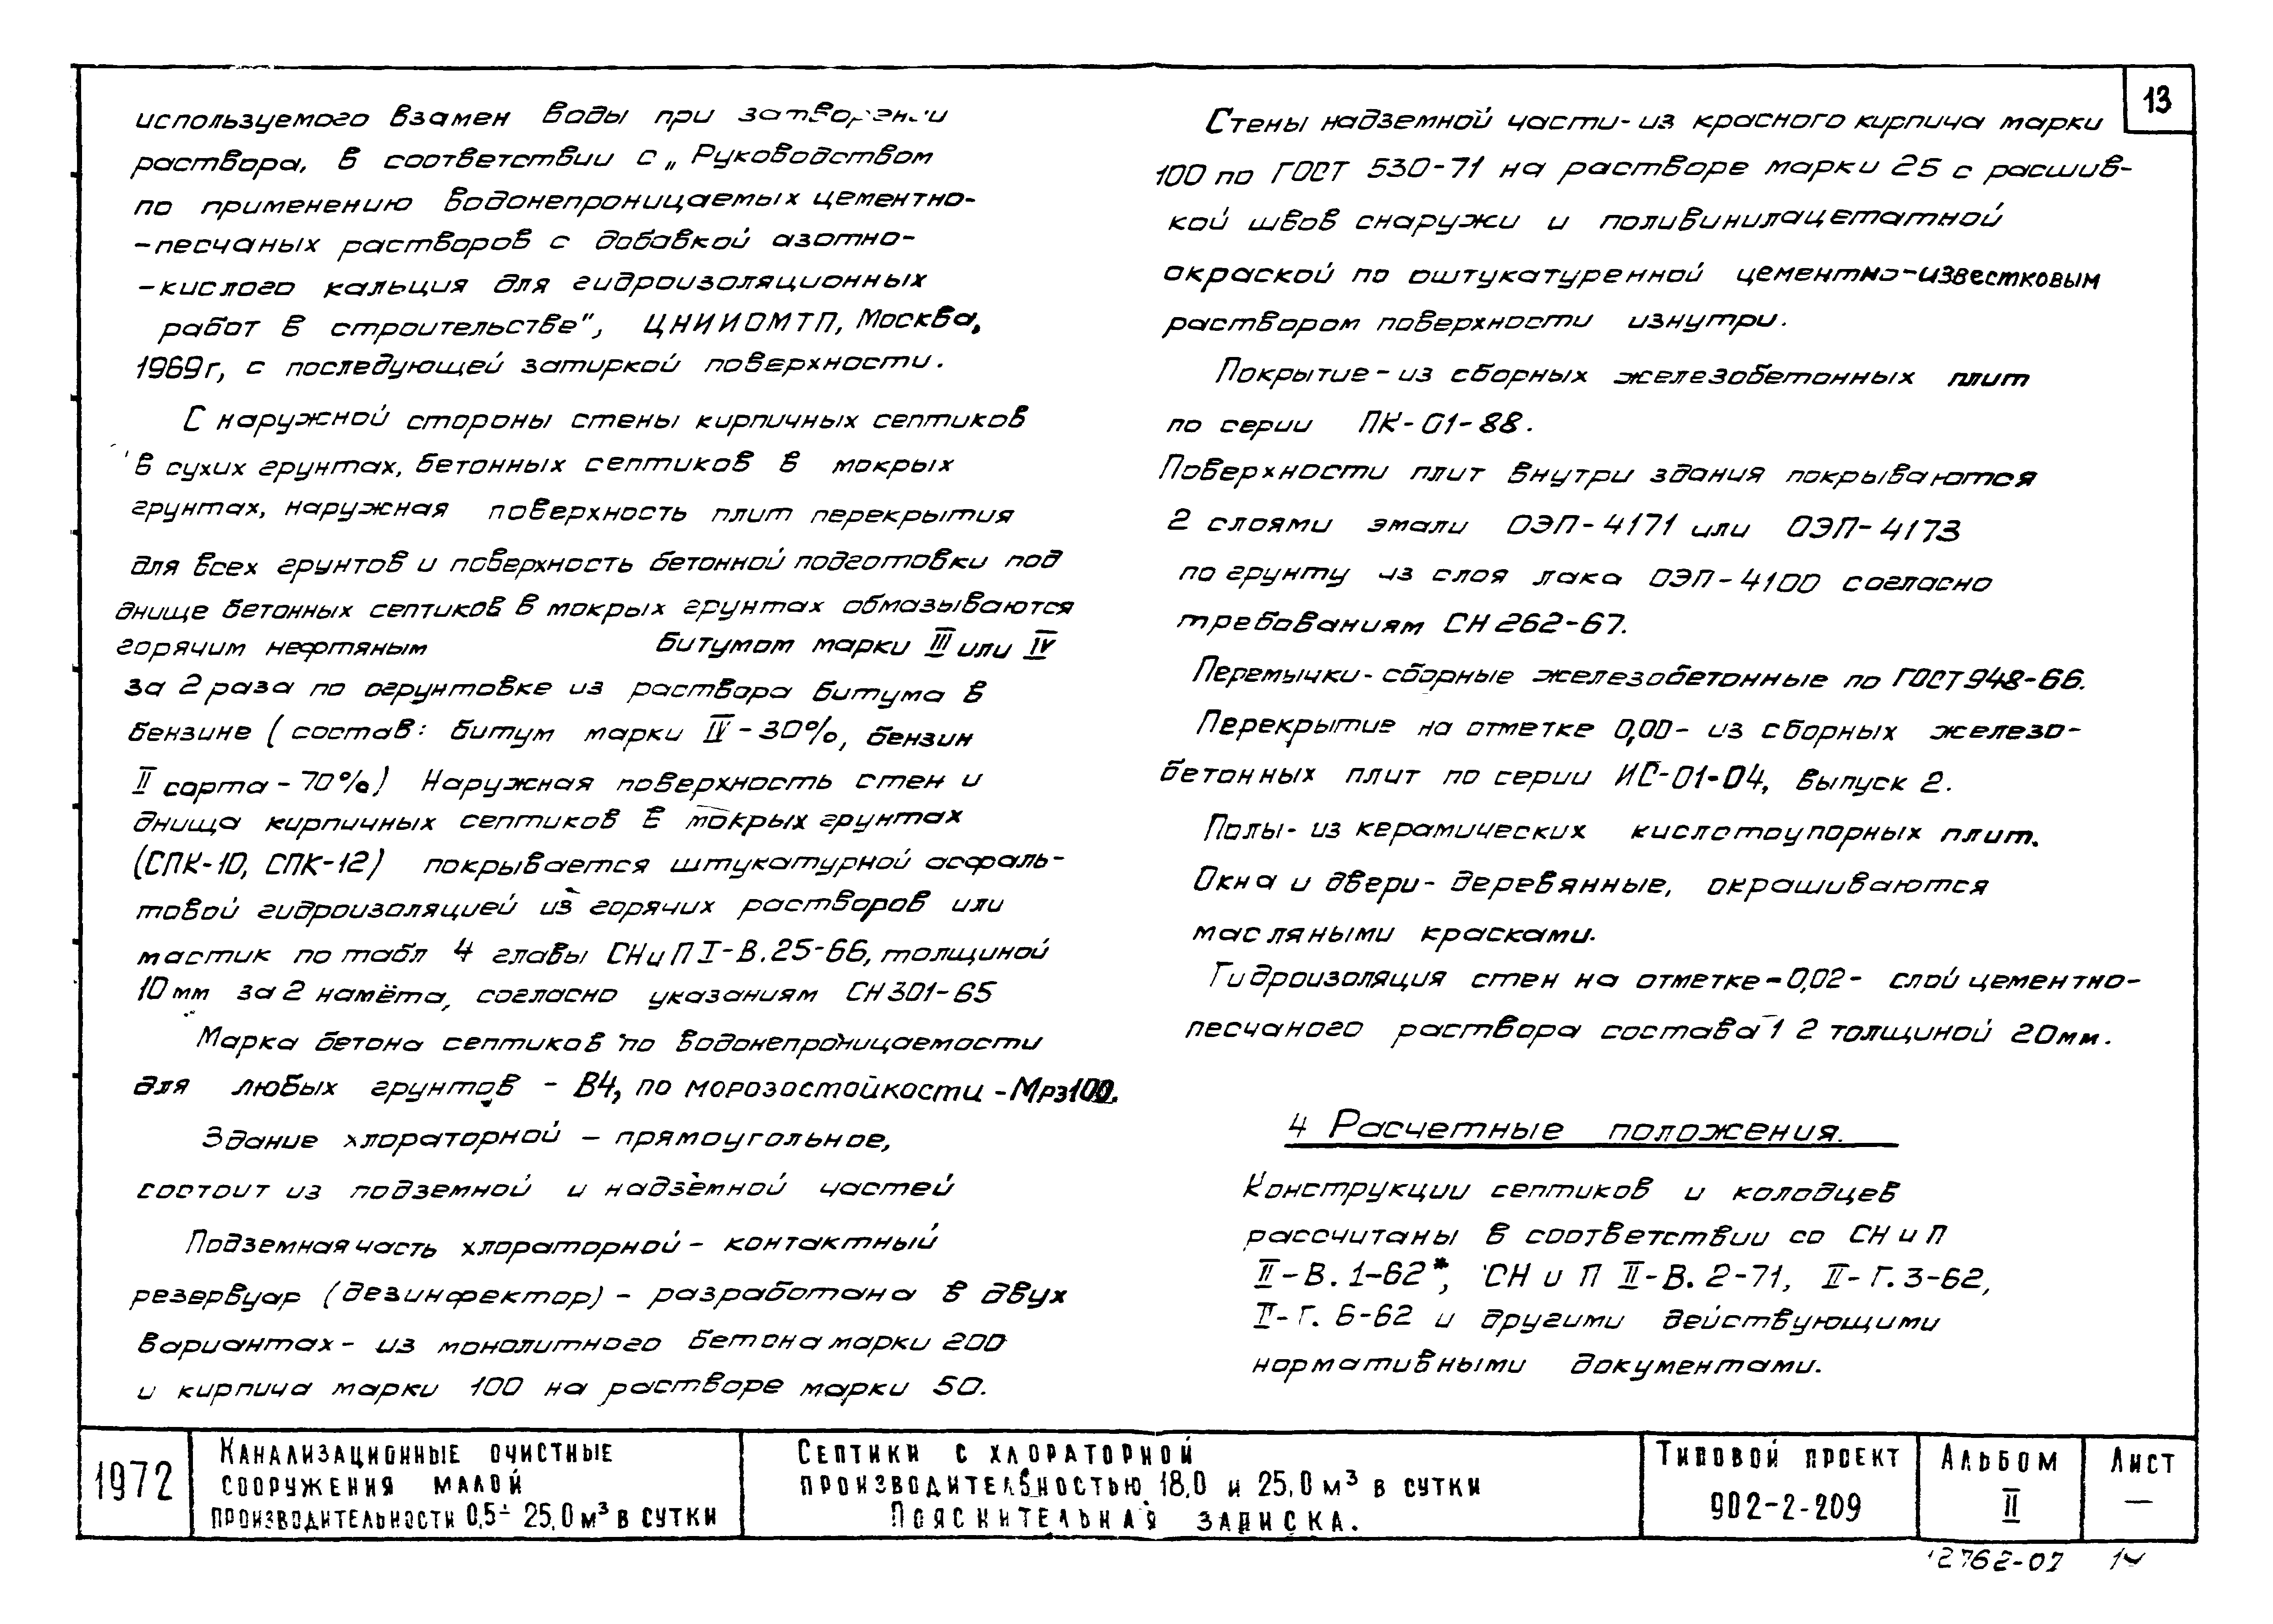 13
используемого взамен воды при затворении
раствора, в соответствии с „Руководством
по применению водонепроницаемых цементно-
-песчаных растворов с добавкой азотно-
-кислого кальция для гидроизоляционных
работ в строительстве", ЦНИИОМТП, Москва,
1969г, с последующей затиркой поверхности.
С наружной стороны стены кирпичных септиков
в сухих грунтах, бетонных септиков в мокрых
грунтах, наружная поверхность плит перекрытия
для всех грунтов и поверхность бетонной подготовки под
днище бетонных септиков в мокрых грунтах обмазываются
горячим нефтяным битумом марки III или IV
за 2 раза по огрунтовке из раствора битума в
бензине (состав: битум марки IV-30%, бензин
II сорта-70%) Наружная поверхность стен и
днища кирпичных септиков в мокрых грунтах
(СПК-10, СПК-12) покрывается штукатурной асфаль-
товой гидроизоляцией из горячих растворов или
мастик по табл 4 главы СНиП I-В.25-66, толщиной
10мм за 2 намёта, согласно указаниям СН 301-65
Марка бетона септиков по водонепроницаемости
для любых грунтов - В4, по морозостойкости -Мрз100.
Здание хлораторной - прямоугольное,
состоит из подземной и надземной частей
Подземная часть хлораторной - контактный
резервуар (дезинфектор) - разработана в двух
вариантах- из монолитного бетона марки 200
и кирпича марки 100 на растворе марки 50.
Стены надземной части- из красного кирпича марки
100 по ГОСТ 530-71 на растворе марки 25 с расшив-
кой швов снаружи и поливинилацетатной
окраской по оштукатуренной цементно-известковым
раствором поверхности изнутри.
Покрытие-из сборных железобетонных плит
по серии ПК-01-88.
Поверхности плит внутри здания покрываются
2 слоями эмали ОЭП-4171 или ОЭП-4173
по грунту из слоя лака ОЭП-4100 согласно
требованиям СН 262-67.
Перемычки- сборные железобетонные по ГОСТ 948-66.
Перекрытие на отметке 0,00- из сборных железо-
бетонных плит по серии ИС-01-04, выпуск 2.
Полы- из керамических кислотоупорных плит.
Окна и двери- деревянные, окрашиваются
масляными красками.
Гидроизоляция стен на отметке-0,02- слой цементно-
песчаного раствора состава 1 2 толщиной 20мм.
4 Расчетные положения.
Конструкции септиков и колодцев
рассчитаны в соответствии со СНиП
II-В.1-62*, СНиП II-В.2-71, II-Г.3-62,
II-Г.6-62 и другими действующими
нормативными документами.
1972
Канализационные очистные
сооружения малой
производительности 0,5÷25,0м³ в сутки
Септики с хлораторной
производительностью 18,0 и 25,0м³ в сутки
Пояснительная записка.
Типовой проект
902-2-209
Альбом
II
Лист
—
12762-02